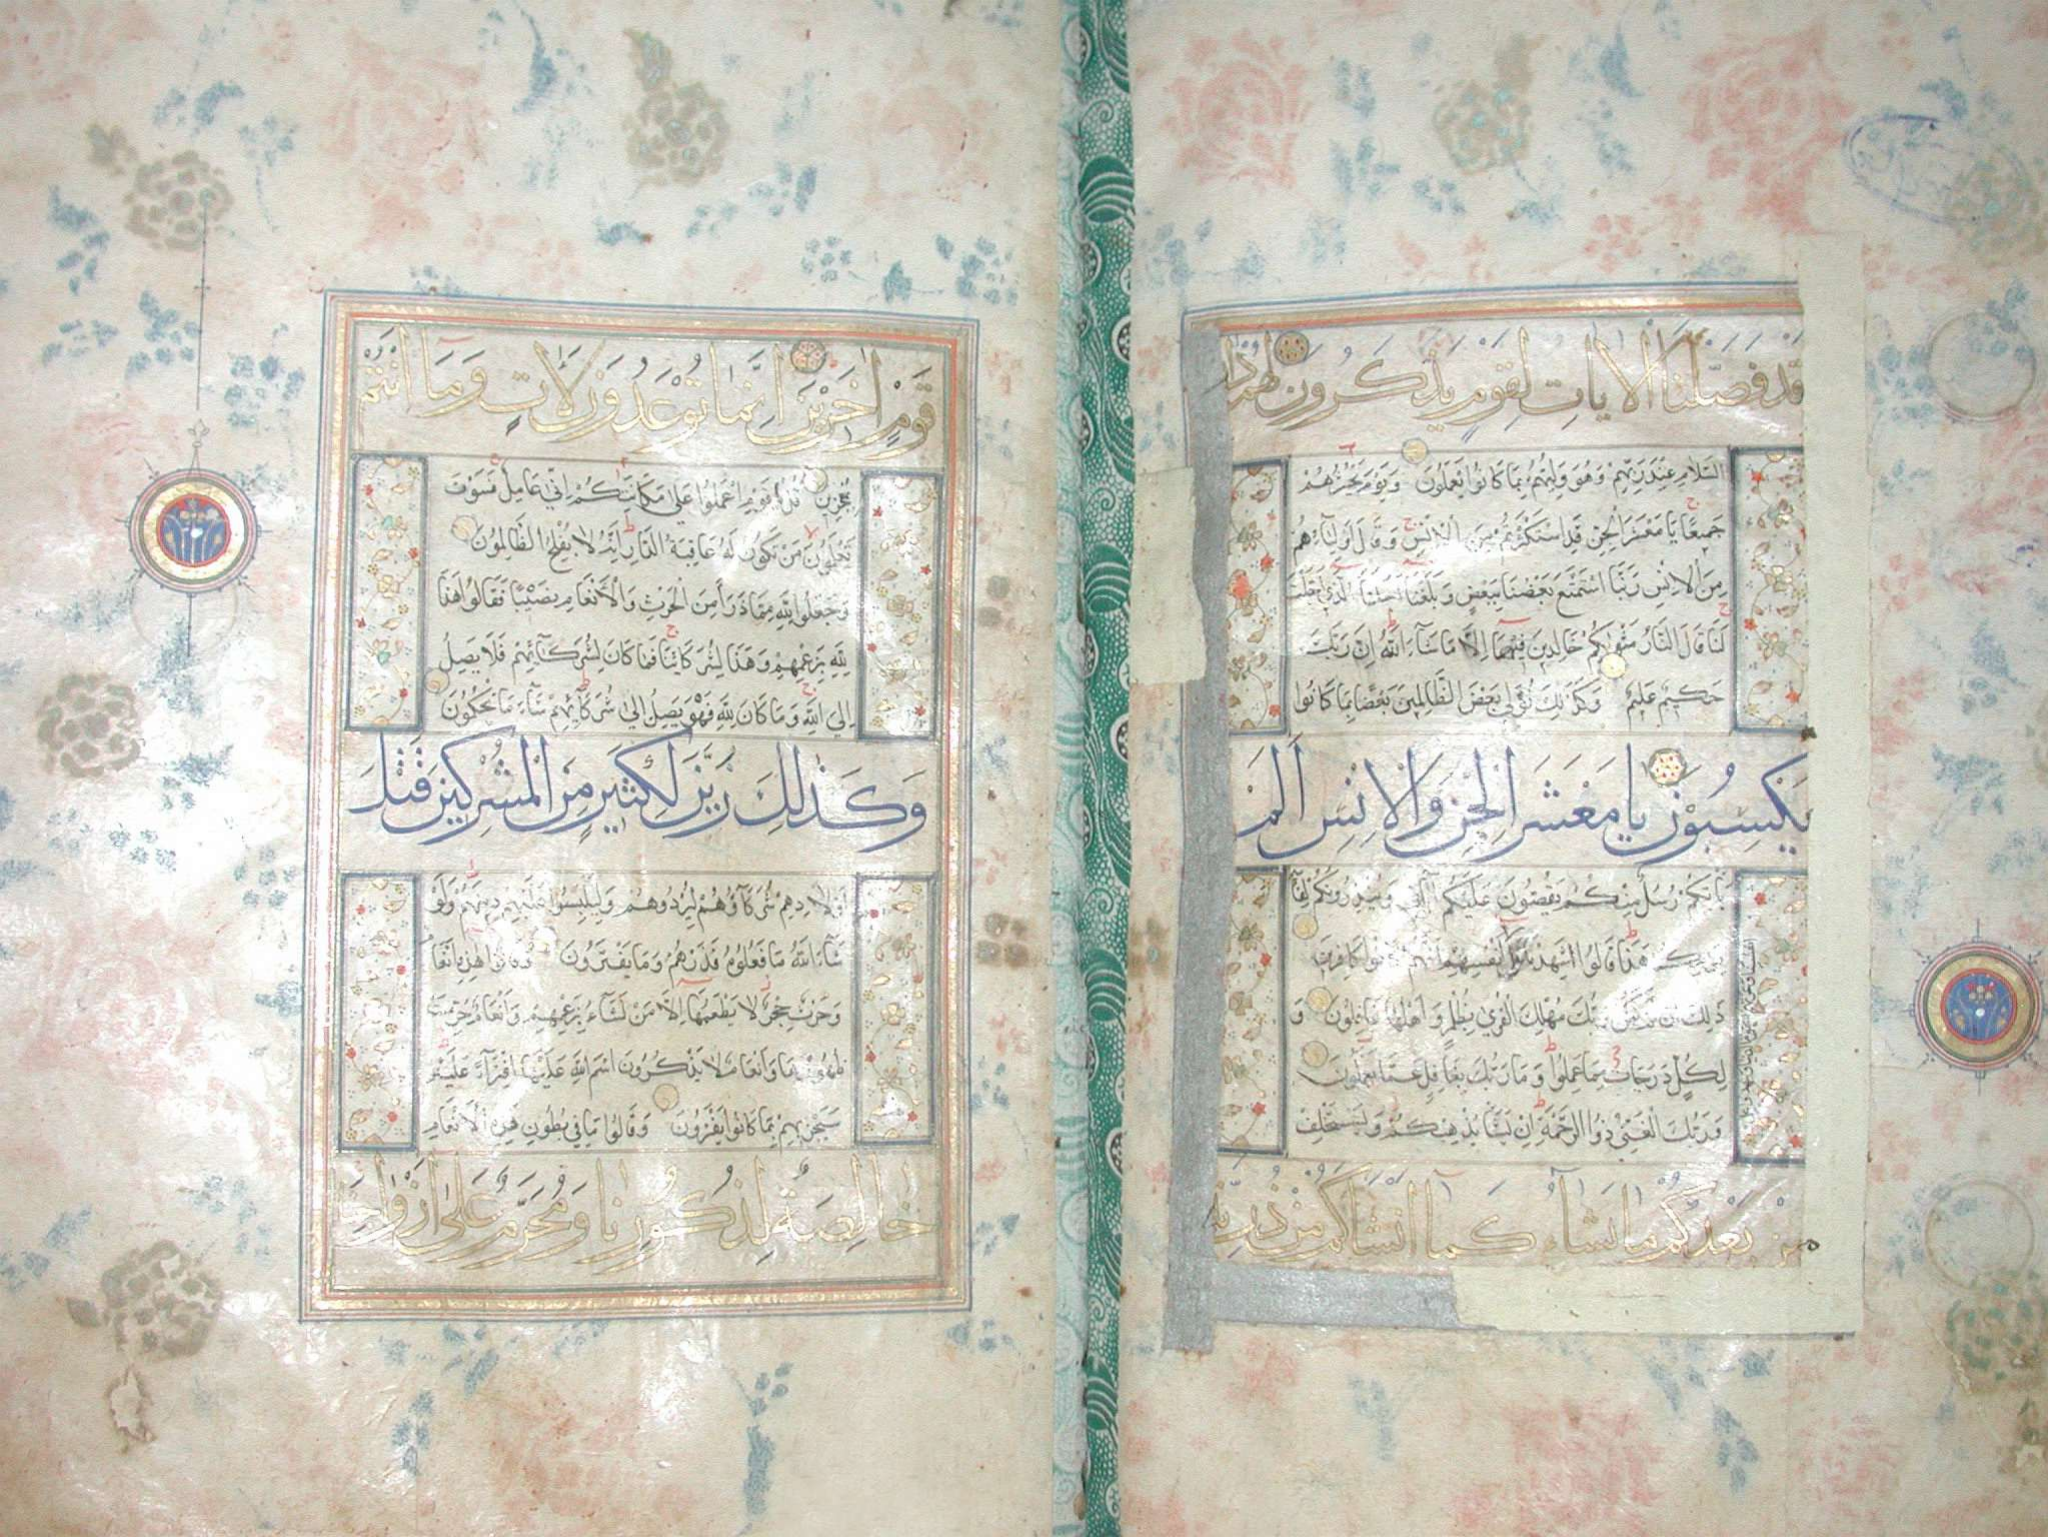 قد فصلنا الآيات لقوم يذكرون لهم دار
السلام عند ربهم وهو وليهم بما كانوا يعملون ويوم نحشرهم
جميعا يا معشر الجن قد استكثرتم من الانس وقال اولياؤهم
من الانس ربنا استمتع بعضنا ببعض وبلغنا اجلنا الذي اجلت
لنا قال النار مثواكم خالدين فيها الا ما شاء الله ان ربك
حكيم عليم وكذلك نولي بعض الظالمين بعضا بما كانوا
يكسبون يا معشر الجن والانس الم
ياتكم رسل منكم يقصون عليكم آياتي وينذرونكم لقاء
يومكم هذا قالوا شهدنا على انفسهم انهم كانوا كافرين
ذلك ان لم يكن ربك مهلك القرى بظلم واهلها غافلون و
لكل درجات مما عملوا وما ربك بغافل عما يعملون
وربك الغني ذو الرحمة ان يشا يذهبكم ويستخلف
من بعدكم ما يشاء كما انشاكم من ذرية
قوم اخرين انما توعدون لآت وما انتم
بمعجزين قل يا قوم اعملوا على مكانتكم اني عامل فسوف
تعلمون من تكون له عاقبة الدار انه لا يفلح الظالمون
وجعلوا لله مما ذرأ من الحرث والانعام نصيبا فقالوا هذا
لله بزعمهم وهذا لشركائنا فما كان لشركائهم فلا يصل
الى الله وما كان لله فهو يصل الى شركائهم ساء ما يحكمون
وكذلك زين لكثير من المشركين قتل
اولادهم شركاؤهم ليردوهم وليلبسوا عليهم دينهم ولو
شاء الله ما فعلوه فذرهم وما يفترون وقالوا هذه انعام
وحرث حجر لا يطعمها الا من نشاء بزعمهم وانعام حرمت
ظهورها وانعام لا يذكرون اسم الله عليها افتراء عليه
سيجزيهم بما كانوا يفترون وقالوا ما في بطون هذه الانعام
خالصة لذكورنا ومحرم على ازواجنا